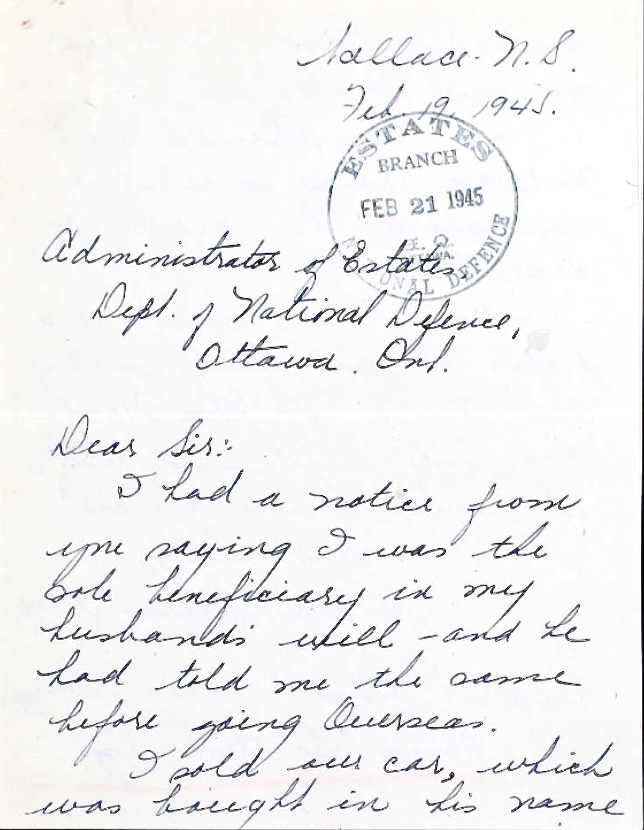 Wallace. N.S.
Feb 19, 1945.
ESTATES
BRANCH
FEB 21 1945
NATIONAL DEFENCE
Administrator of Estates,
Dept. of National Defence,
Ottawa. Ont.
Dear Sir:-
I had a notice from
you saying I was the
sole beneficiary in my
husbands will - and he
had told me the same
before going Overseas.
I sold our car, which
was bought in his name